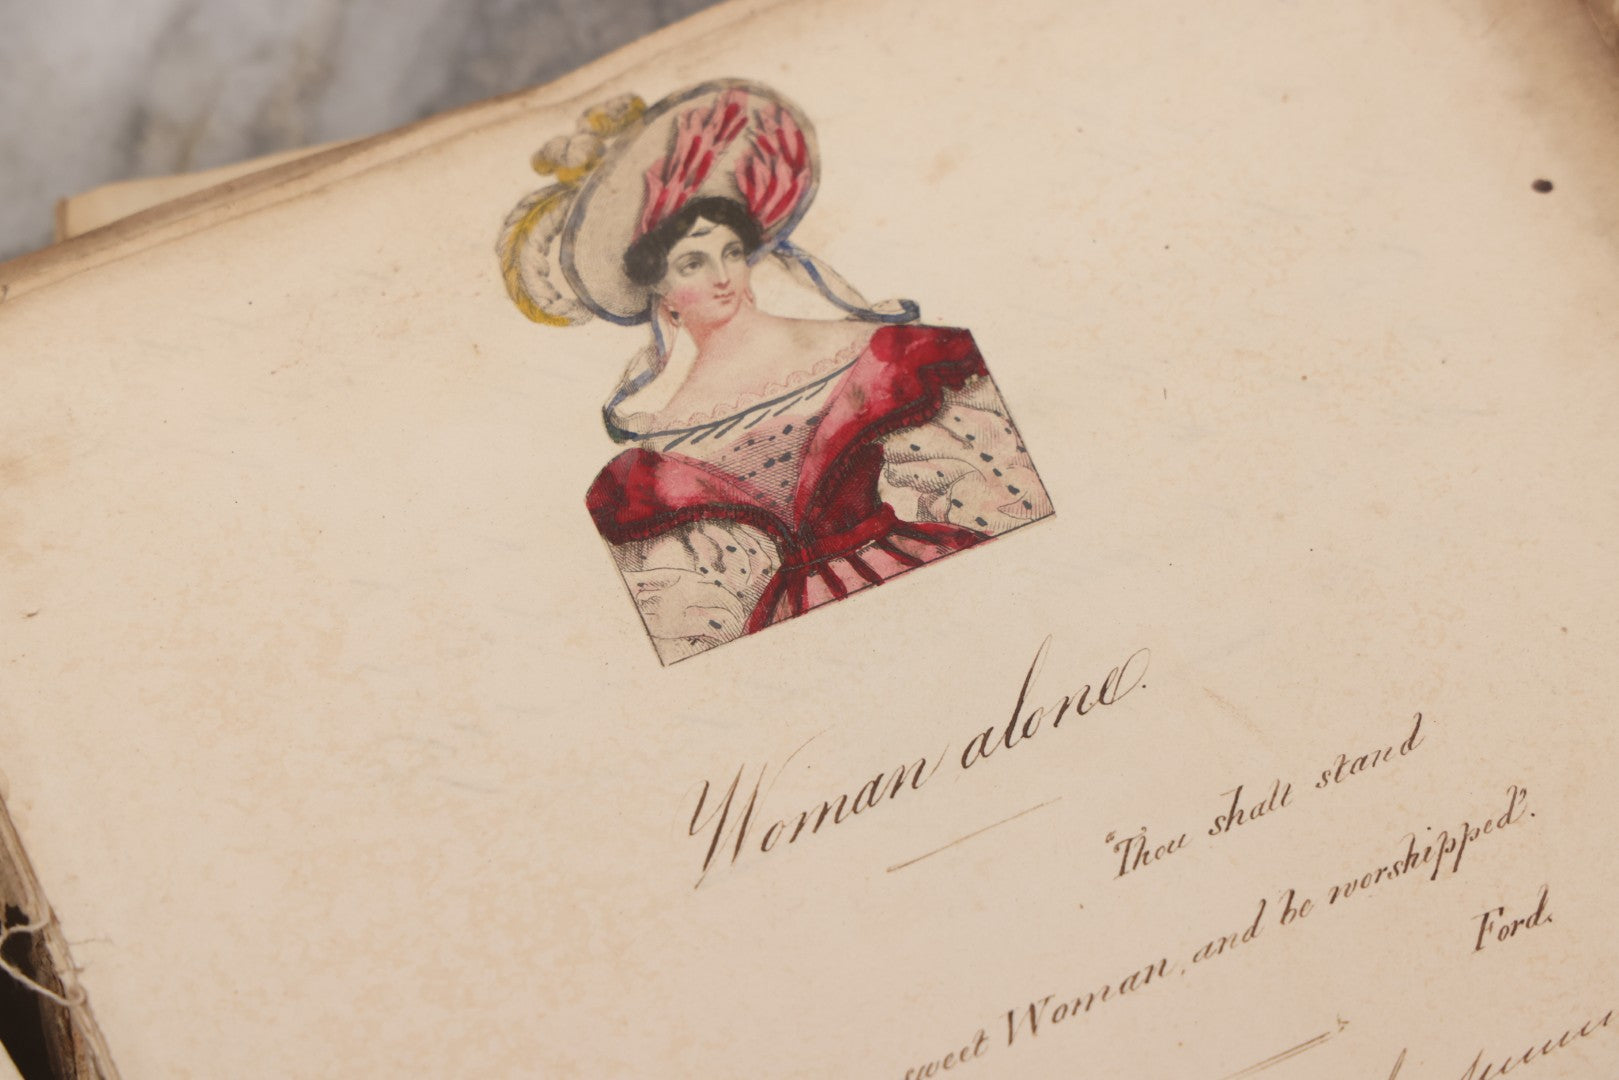 Woman alone.
"Thou shalt stand
sweet Woman, and be worshipped".
Ford.